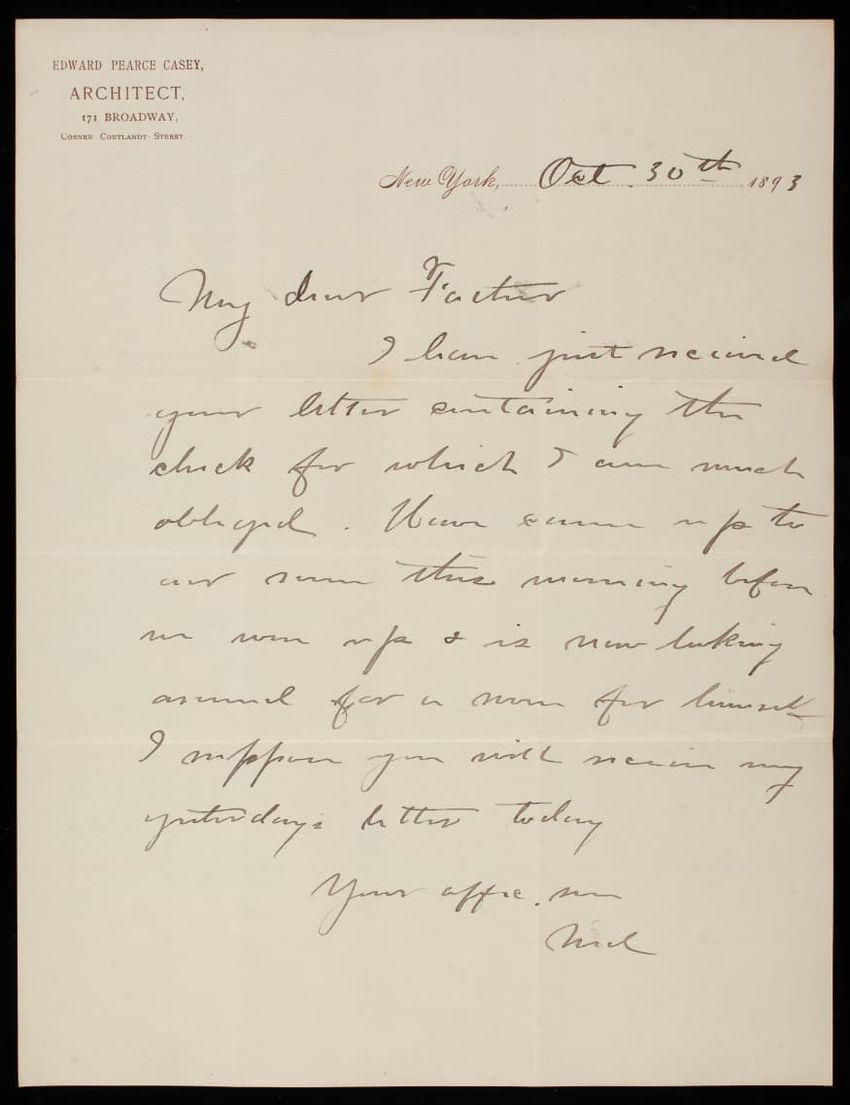 EDWARD PEARCE CASEY,
ARCHITECT,
171 BROADWAY,
CORNER CORTLANDT STREET.
New York, Oct. 30th 1893
My dear Father
I have just received
your letter containing the
check for which I am much
obliged. came up to
our room this morning before
we were up & is now looking
around for a room for himself
I suppose you will receive my
yesterday's letter today
Your affec. son
Ned